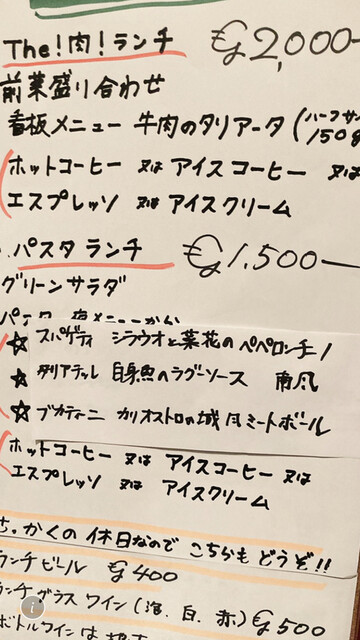 The!肉!ランチ €2,000-
前菜盛り合わせ
看板メニュー 牛肉のタリアータ(ハーフサ
150g
ホットコーヒー 又は アイスコーヒー 又は
エスプレッソ 又は アイスクリーム
パスタランチ €1,500-
グリーンサラダ
☆ スパゲティ シラウオと菜花のペペロンチーノ
☆ タリアテッレ 白身魚のラグーソース 南風
☆ ブカティーニ カリオストロの城風ミートボール
ホットコーヒー 又は アイスコーヒー 又は
エスプレッソ 又は アイスクリーム
かくの 休日なので こちらも どうぞ!!
ランチビール €400
ランチグラスワイン(泡.白.赤) €500
ボトルワインは